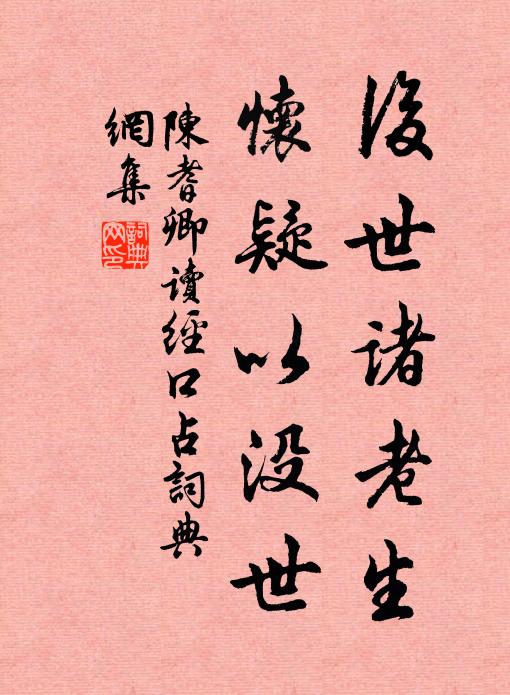 後世諸老生
懷疑以没世
陳耆卿讀經口占詞典
網集
詞典網印